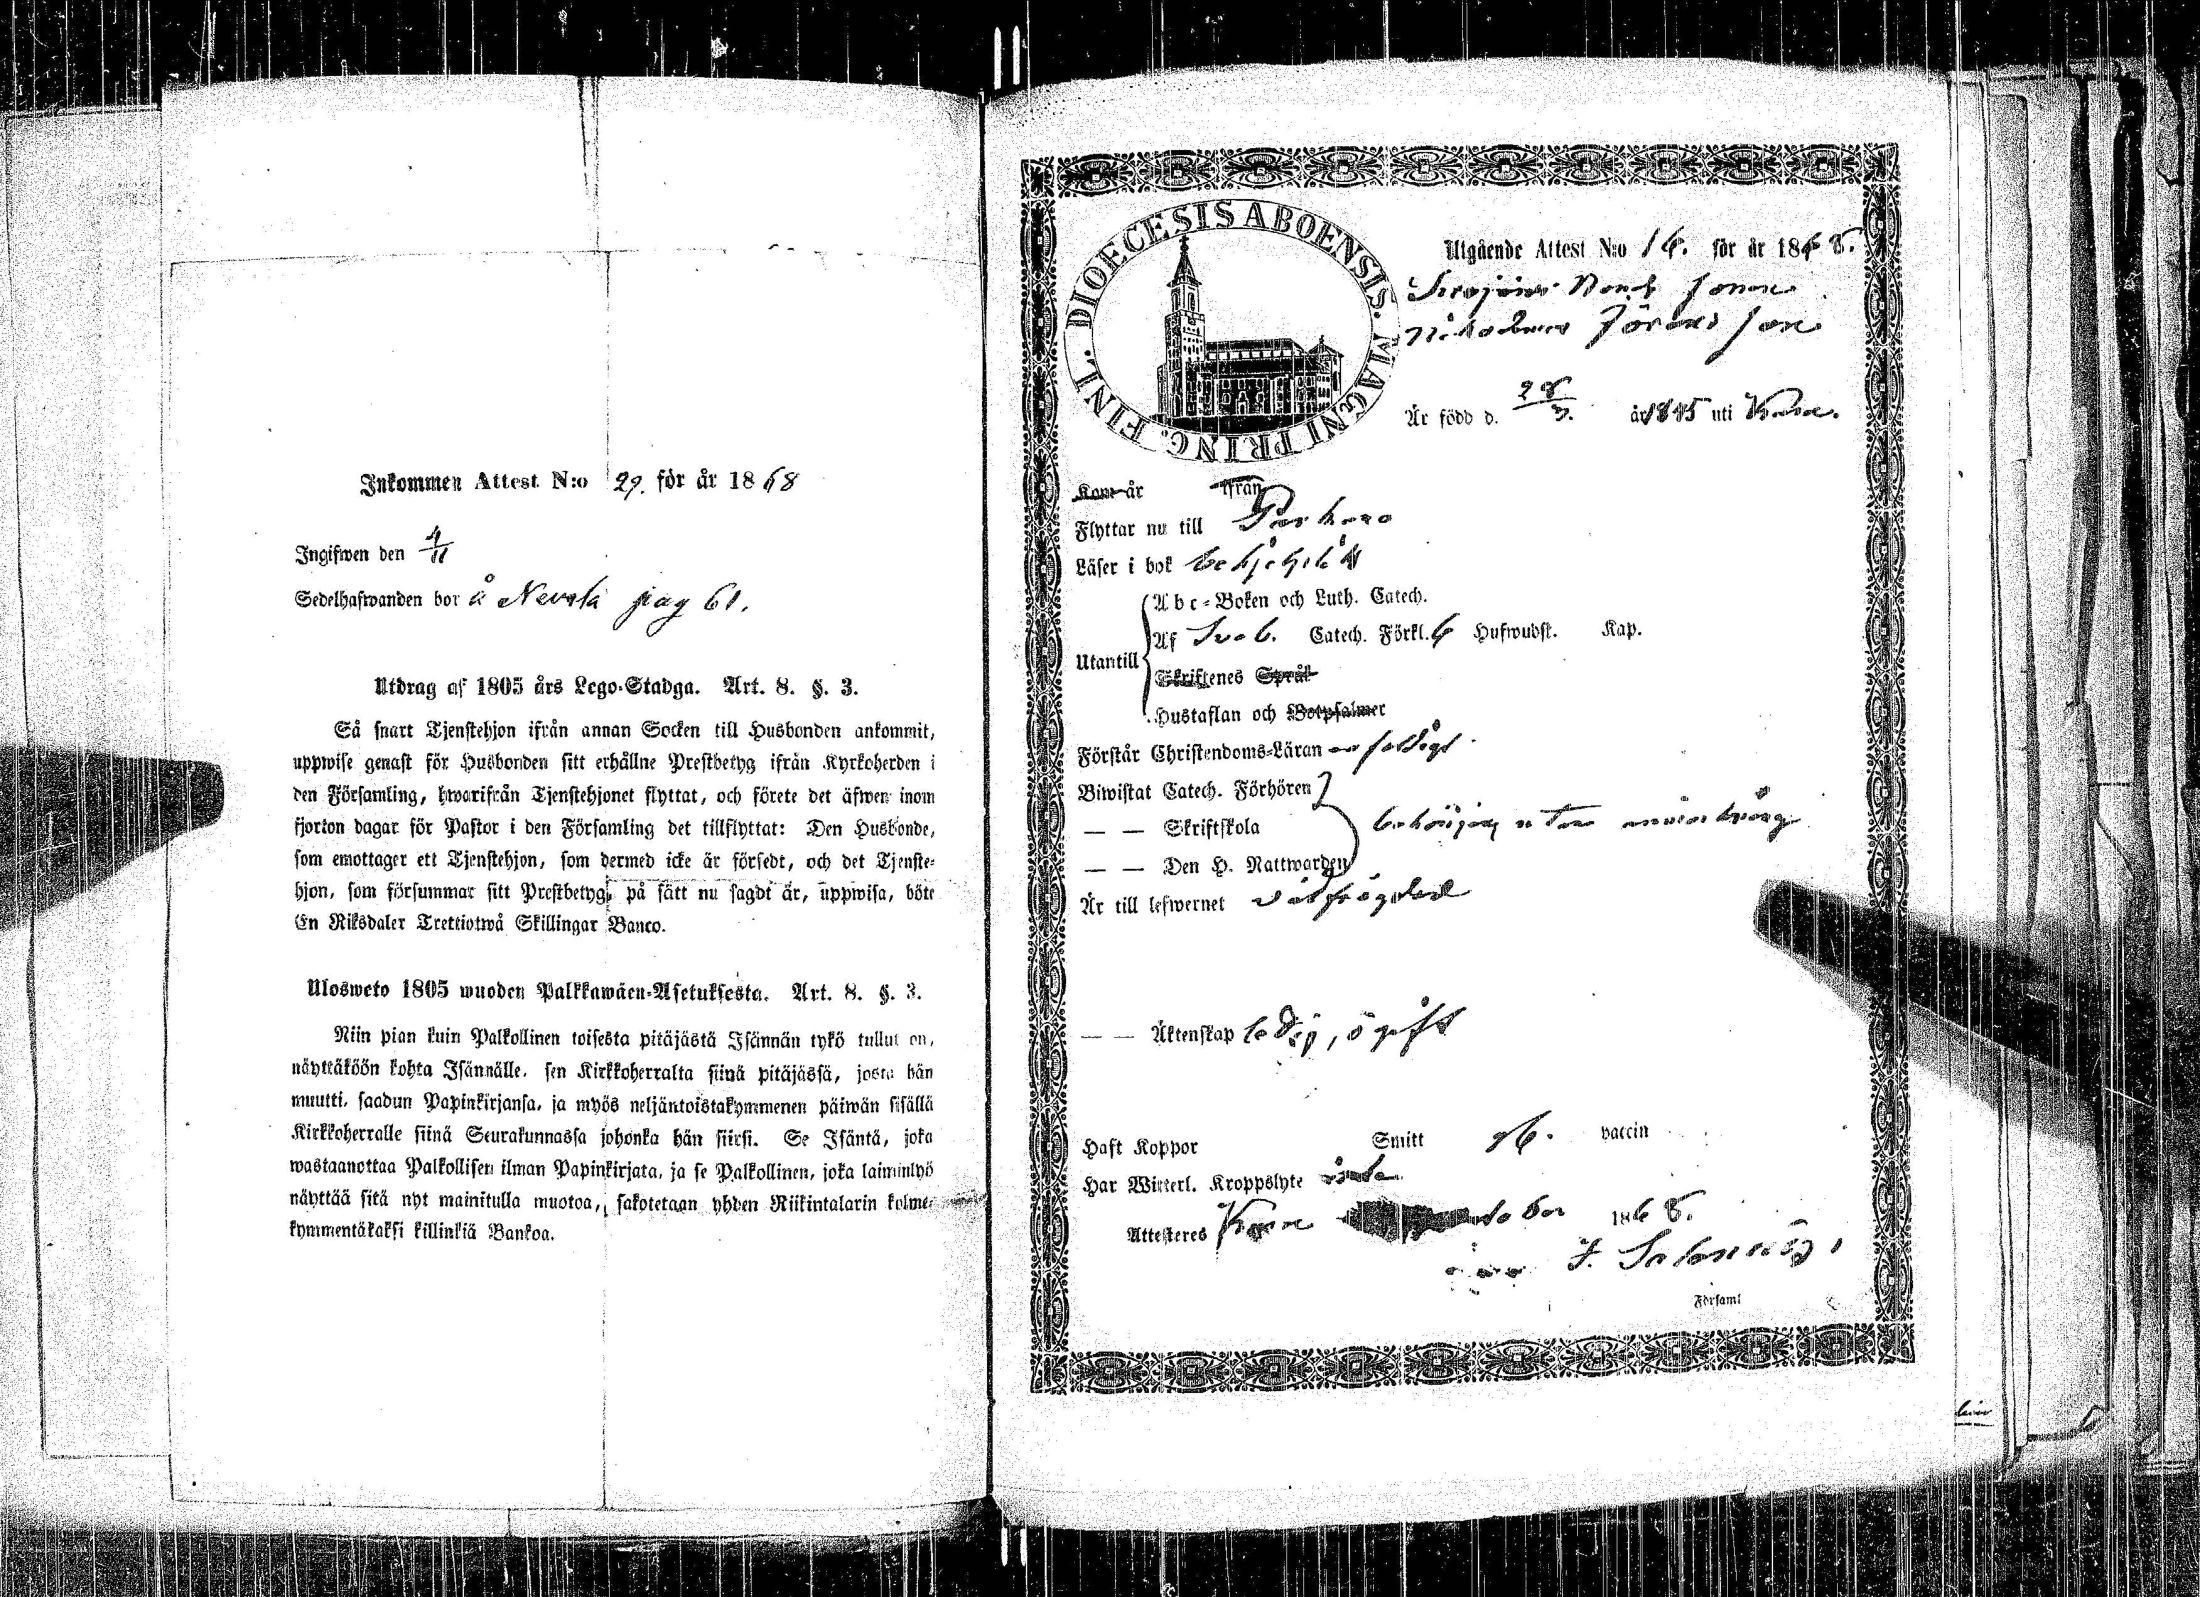 Inkommen Attest N:o 29. för år 1868
Ingifwen den 4/11
Sedelhafwanden bor å Nevala pag 61.
Utdrag af 1805 års Lego-Stadga. Art. 8. §. 3.
Så snart Tjenstehjon ifrån annan Socken till Husbonden ankommit,
uppwise genast för Husbonden sitt erhållne Prestbetyg ifrån Kyrkoherden i
den Församling, hwarifrån Tjenstehjonet flyttat, och förete det äfwen inom
fjorton dagar för Pastor i den Församling det tillflyttat: Den Husbonde,
som emottager ett Tjenstehjon, som dermed icke är försedt, och det Tjenste-
hjon, som försummar sitt Prestbetyg, på sätt nu sagdt är, uppwisa, böte
En Riksdaler Trettiotwå Skillingar Banco.
Ulosweto 1805 wuoden Palkkawäen-Asetuksesta. Art. 8. §. 3.
Niin pian kuin Palkollinen toisesta pitäjästä Isännän tykö tullut on,
näyttäköön kohta Isännälle, sen Kirkkoherralta siinä pitäjässä, josta hän
muutti, saadun Papinkirjansa, ja myös neljäntoistakymmenen päiwän sisällä
Kirkkoherralle siinä Seurakunnassa johonka hän siirsi. Se Isäntä, joka
wastaanottaa Palkollisen ilman Papinkirjata, ja se Palkollinen, joka laiminlyö
näyttää sitä nyt mainitulla muotoa, sakotetaan yhden Riikintalarin kolme-
kymmentäkaksi killinkiä Bankoa.
DIOECESIS ABOENSIS. MAGNI PRINC. FINL.
Utgående Attest N:o 16. för år 1868.
Nikodemus Jöransson
Är född d. 28/3. år 1845 uti
Kom år ifrån
Flyttar nu till Parkano
Läser i bok
Utantill
Abc-Boken och Luth. Catech.
Af Sveb. Catech. Förkl. 6 Hufwudst. Kap.
Skriftenes Språk
Hustaflan och Botpsalmer
Förstår Christendoms-Läran
Biwistat Catech. Förhören
— — Skriftskola
— — Den H. Nattwarden
behörigen utan anmärkning
Är till lefwernet välfrägdad
— — Äktenskap ledig, ogift
Haft Koppor Smitt vaccin
Har Witterl. Kroppslyte
Attesteres 1868.
Församl